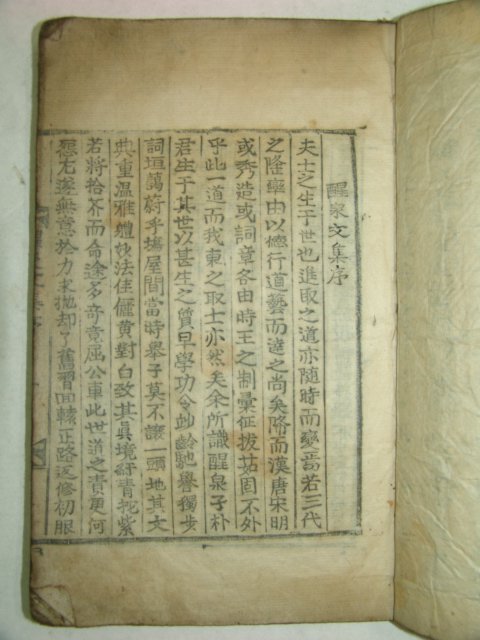 醒泉文集序
夫士之生于世也進取之道亦隨時而變焉若三代
之隆率由以德行道藝而達之尚矣降而漢唐宋明
或秀造或詞章各由時王之制彙征拔茹固不外
乎此一道而我東之取士亦然矣余所識醒泉子朴
君生于其世以甚生之質早學功令妙齡馳譽獨步
詞垣蔚乎場屋間當時舉子莫不讓一頭地其文
典重溫雅軆妙法佳儷黃對白改其眞境紆青拖紫
若將拾芥而命途多奇竟屈公車此世道之責更何
怨尤遂無意於力求抛却了舊習回轅正路返修初服